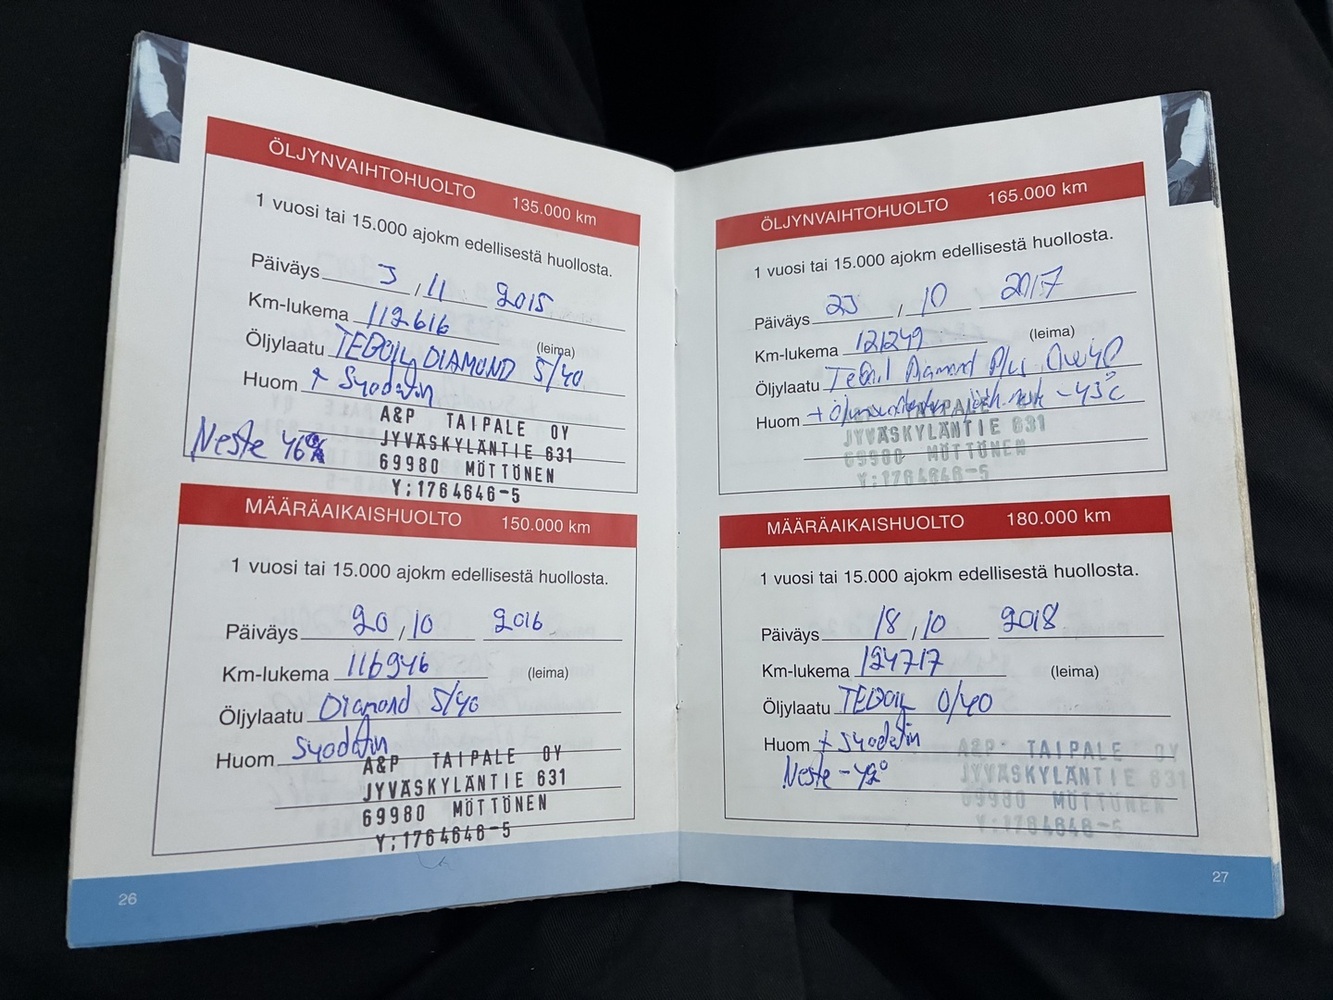 ÖLJYNVAIHTOHUOLTO 135.000 km
1 vuosi tai 15.000 ajokm edellisestä huollosta.
Päiväys 3 , 11 2015
Km-lukema 112616 (leima)
Öljylaatu TEBOIL DIAMOND 5/40
Huom + Suodatin
Neste 46%
A&P TAIPALE OY
JYVÄSKYLÄNTIE 631
69980 MÖTTÖNEN
Y:1764646-5
MÄÄRÄAIKAISHUOLTO 150.000 km
1 vuosi tai 15.000 ajokm edellisestä huollosta.
Päiväys 20 , 10 2016
Km-lukema 116946 (leima)
Öljylaatu Diamond 5/40
Huom Suodatin
A&P TAIPALE OY
JYVÄSKYLÄNTIE 631
69980 MÖTTÖNEN
Y:1764646-5
26
ÖLJYNVAIHTOHUOLTO 165.000 km
1 vuosi tai 15.000 ajokm edellisestä huollosta.
Päiväys 23 , 10 2017
Km-lukema 121249 (leima)
Öljylaatu Teboil Diamond Plus 0w40
Huom + -43°C
TAIPALE
JYVÄSKYLÄNTIE 631
69980 MÖTTÖNEN
Y:1764646-5
MÄÄRÄAIKAISHUOLTO 180.000 km
1 vuosi tai 15.000 ajokm edellisestä huollosta.
Päiväys 18 , 10 2018
Km-lukema 124717 (leima)
Öljylaatu TEBOIL 0/40
Huom + Suodatin
Neste -42°
A&P TAIPALE OY
JYVÄSKYLÄNTIE 631
69980 MÖTTÖNEN
Y:1764646-5
27